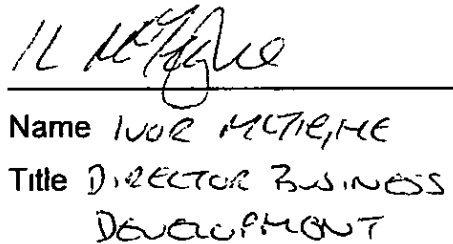 Name IVOR MCTIGHE
Title DIRECTOR BUSINESS
DEVELOPMENT